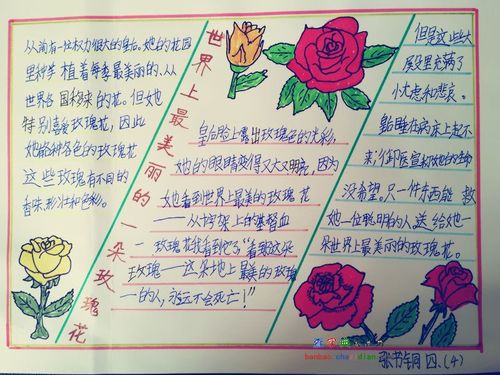 世界上最美丽的一朵玫瑰花
从前有一位权力很大的皇后。她的花园
里种着植着每季最美丽的、从
世界各国移来的花。但她
特别喜爱玫瑰花，因此
她有各种各色的玫瑰花
这些玫瑰有不同的
香味，形状和色彩。
但是这些大
屋里充满了
小忧虑和悲哀。
皇后睡在病床上起不
来，御医宣布她的生命
没希望。只一件东西能救
她一位聪明的人送给她一
朵世界上最美丽的玫瑰花。
皇后脸上露出玫瑰色的光彩，
她的眼睛变得又大又明亮，因为
她看到世界上最美的玫瑰花
——从十字架上的基督血
一玫瑰花我看到它了"看到这朵
玫瑰——这朵地上最美的玫瑰
一的人，永远不会死亡！"
张书钰 四、(4)